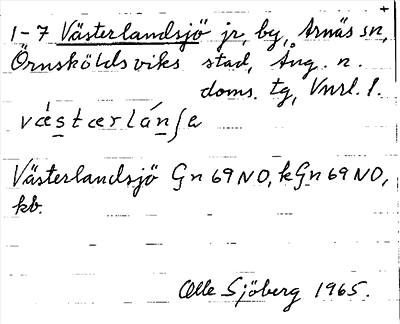 1-7 Västerlandsjö jr, by, Arnäs sn,
Örnsköldsviks stad, Ång. n.
doms. tg, Vnrl. l.
vástærlánʃe
Västerlandsjö Gn 69 NO, kGn 69 NO,
kb.
Olle Sjöberg 1965.